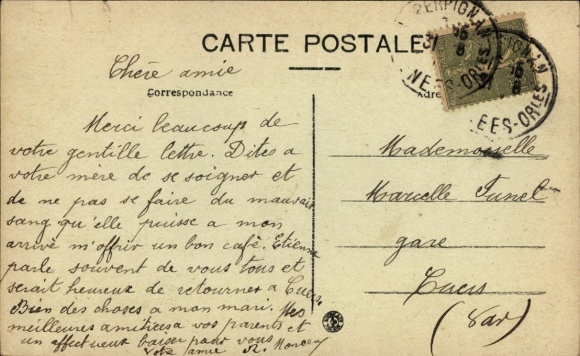 CARTE POSTALE
PERPIGNAN
NEES-ORLES
EES-ORLES
Chère amie
Correspondance
Merci beaucoup de
votre gentille lettre. Dites a
votre mère de se soigner et
de ne pas se faire du mauvais
sang qu'elle puisse a mon
arrivé m'offrir un bon café. Etienne
parle souvent de vous tous et
serait heureux de retourner a Cuers.
Bien des choses a mon mari. Mes
meilleures amitiées a vos parents et
un affectueux baiser pour vous
Votre amie R.
Mademoiselle
Marcelle Tunel
gare
Cuers
(Var)